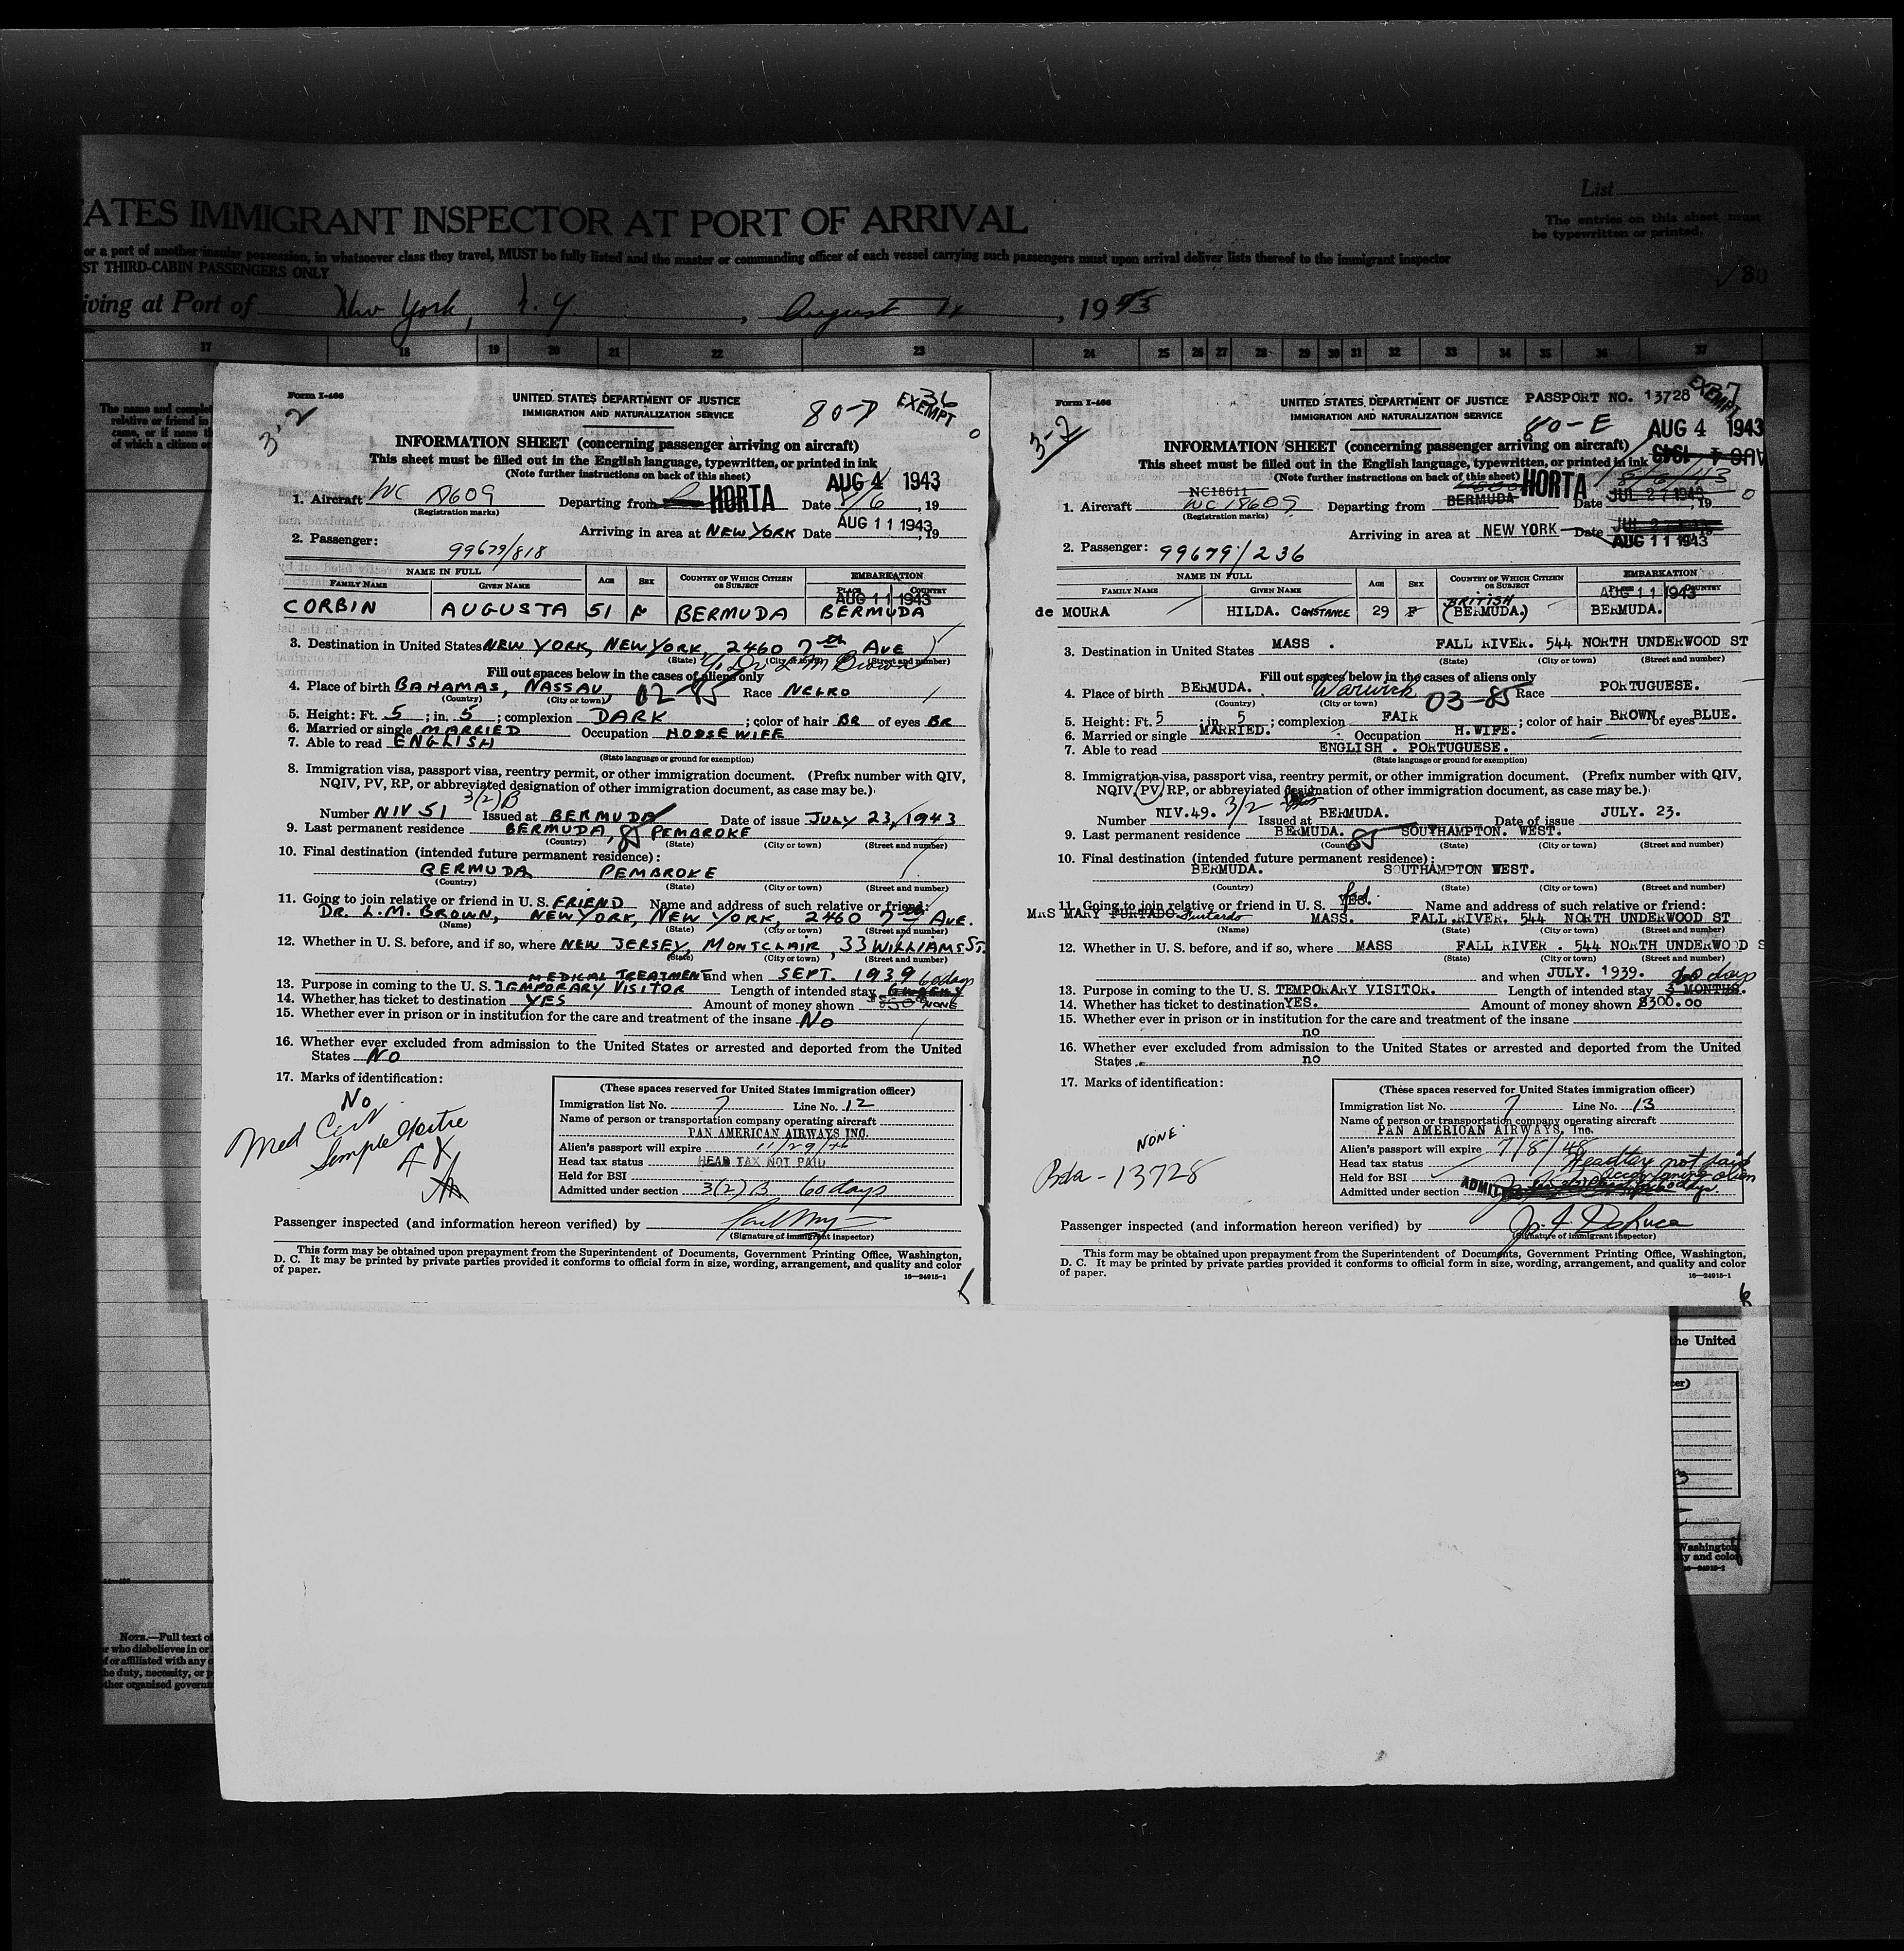 List
ATES IMMIGRANT INSPECTOR AT PORT OF ARRIVAL
The entries on this sheet must
be typewritten or printed.
or a port of another insular possession, in whatsoever class they travel, MUST be fully listed and the master or commanding officer of each vessel carrying such passengers must upon arrival deliver lists thereof to the immigrant inspector
ST THIRD-CABIN PASSENGERS ONLY
80
iving at Port of New York, N. Y. , August 11 , 1943
17 18 19 20 21 22 23 24 25 26 27 28 29 30 31 32 33 34 35 36 37
The name and complet
relative or friend in
came, or if none th
of which a citizen or
Form I-466
3-2
UNITED STATES DEPARTMENT OF JUSTICE
IMMIGRATION AND NATURALIZATION SERVICE
80-D
36
EXEMPT
INFORMATION SHEET (concerning passenger arriving on aircraft)
This sheet must be filled out in the English language, typewritten, or printed in ink
(Note further instructions on back of this sheet)
AUG 4 1943
1. Aircraft NC 18609 Departing from HORTA Date 8/6 , 19
(Registration marks)
Arriving in area at NEW YORK Date AUG 11 1943 , 19
2. Passenger: 99679/818
NAME IN FULL
FAMILY NAME GIVEN NAME AGE SEX COUNTRY OF WHICH CITIZEN OR SUBJECT EMBARKATION
PLACE COUNTRY
AUG 11 1943
CORBIN AUGUSTA 51 F BERMUDA BERMUDA
3. Destination in United States NEW YORK, NEW YORK, 2460 7th AVE
(State) (City or town) (Street and number)
c/o Dr L M Brown
Fill out spaces below in the cases of aliens only
4. Place of birth BAHAMAS, NASSAU, 02-85 Race NEGRO
(Country) (City or town)
5. Height: Ft. 5 ; in. 5 ; complexion DARK ; color of hair BR of eyes BR
6. Married or single MARRIED Occupation HOUSEWIFE
7. Able to read ENGLISH
(State language or ground for exemption)
8. Immigration visa, passport visa, reentry permit, or other immigration document. (Prefix number with QIV,
NQIV, PV, RP, or abbreviated designation of other immigration document, as case may be.)
3(2)B
Number NIV 51 Issued at BERMUDA Date of issue JULY 23, 1943
9. Last permanent residence BERMUDA, 85 PEMBROKE
(Country) (State) (City or town) (Street and number)
10. Final destination (intended future permanent residence):
BERMUDA PEMBROKE
(Country) (State) (City or town) (Street and number)
11. Going to join relative or friend in U. S. FRIEND Name and address of such relative or friend:
DR. L.M. BROWN, NEW YORK, NEW YORK, 2460 7th AVE.
(Name) (State) (City or town) (Street and number)
12. Whether in U. S. before, and if so, where NEW JERSEY, MONTCLAIR, 33 WILLIAMS ST.
(State) (City or town) (Street and number)
MEDICAL TREATMENT and when SEPT. 1939
60 days
13. Purpose in coming to the U. S. TEMPORARY VISITOR Length of intended stay
14. Whether has ticket to destination YES Amount of money shown $50 NONE
15. Whether ever in prison or in institution for the care and treatment of the insane NO
16. Whether ever excluded from admission to the United States or arrested and deported from the United
States NO
17. Marks of identification:
No
Med Cert
Simple Goitre
(These spaces reserved for United States immigration officer)
Immigration list No. 7 Line No. 12
Name of person or transportation company operating aircraft
PAN AMERICAN AIRWAYS INC.
Alien's passport will expire 11/29/46
Head tax status HEAD TAX NOT PAID
Held for BSI
Admitted under section 3(2) B 60 days
Passenger inspected (and information hereon verified) by
(Signature of immigrant inspector)
This form may be obtained upon prepayment from the Superintendent of Documents, Government Printing Office, Washington,
D. C. It may be printed by private parties provided it conforms to official form in size, wording, arrangement, and quality and color
of paper.
16—24915-1
Form I-466
3-2
UNITED STATES DEPARTMENT OF JUSTICE
IMMIGRATION AND NATURALIZATION SERVICE
PASSPORT NO. 13728
EXEMPT
80-E
AUG 4 1943
INFORMATION SHEET (concerning passenger arriving on aircraft)
This sheet must be filled out in the English language, typewritten, or printed in ink
(Note further instructions on back of this sheet)
8/6/43
NC18611
1. Aircraft NC 18609 Departing from BERMUDA HORTA Date JUL 27 1943 , 19
(Registration marks)
Arriving in area at NEW YORK Date AUG 11 1943
2. Passenger: 99679/236
NAME IN FULL
FAMILY NAME GIVEN NAME AGE SEX COUNTRY OF WHICH CITIZEN OR SUBJECT EMBARKATION
COUNTRY
AUG 11 1943
BRITISH
de MOURA HILDA. CONSTANCE 29 F (BERMUDA.) BERMUDA.
3. Destination in United States MASS . FALL RIVER. 544 NORTH UNDERWOOD ST
(State) (City or town) (Street and number)
Fill out spaces below in the cases of aliens only
4. Place of birth BERMUDA. Warwick 03-85 Race PORTUGUESE.
(Country) (City or town)
5. Height: Ft. 5 ; in. 5 ; complexion FAIR ; color of hair BROWN of eyes BLUE.
6. Married or single MARRIED. Occupation H.WIFE.
7. Able to read ENGLISH . PORTUGUESE.
(State language or ground for exemption)
8. Immigration visa, passport visa, reentry permit, or other immigration document. (Prefix number with QIV,
NQIV, PV, RP, or abbreviated designation of other immigration document, as case may be.)
Number NIV.49. 3/2 Issued at BERMUDA. Date of issue JULY. 23.
9. Last permanent residence BERMUDA. 85 SOUTHAMPTON. WEST.
(Country) (State) (City or town) (Street and number)
10. Final destination (intended future permanent residence):
BERMUDA. SOUTHAMPTON WEST.
(Country) (State) (City or town) (Street and number)
11. Going to join relative or friend in U. S. YES. Name and address of such relative or friend:
MRS MARY FURTADO. Furtado MASS. FALL.RIVER. 544 NORTH UNDERWOOD ST
(Name) (State) (City or town) (Street and number)
12. Whether in U. S. before, and if so, where MASS FALL RIVER . 544 NORTH UNDERWOOD S
(State) (City or town) (Street and number)
and when JULY. 1939.
60 days
13. Purpose in coming to the U. S. TEMPORARY VISITOR. Length of intended stay 3 MONTHS.
14. Whether has ticket to destination YES. Amount of money shown $300.00
15. Whether ever in prison or in institution for the care and treatment of the insane
no
16. Whether ever excluded from admission to the United States or arrested and deported from the United
States no
17. Marks of identification:
NONE.
Bda - 13728
(These spaces reserved for United States immigration officer)
Immigration list No. 7 Line No. 13
Name of person or transportation company operating aircraft
PAN AMERICAN AIRWAYS, Inc.
Alien's passport will expire 7/8/48
Head tax status Head tax not paid
Held for BSI
Admitted under section
Passenger inspected (and information hereon verified) by
(Signature of immigrant inspector)
This form may be obtained upon prepayment from the Superintendent of Documents, Government Printing Office, Washington,
D. C. It may be printed by private parties provided it conforms to official form in size, wording, arrangement, and quality and color
of paper.
16—24915-1
the United
cer)
Washington,
ty and color
NOTE.—Full text of
r who disbelieves in or
f or affiliated with any o
he duty, necessity, or p
ther organized governm